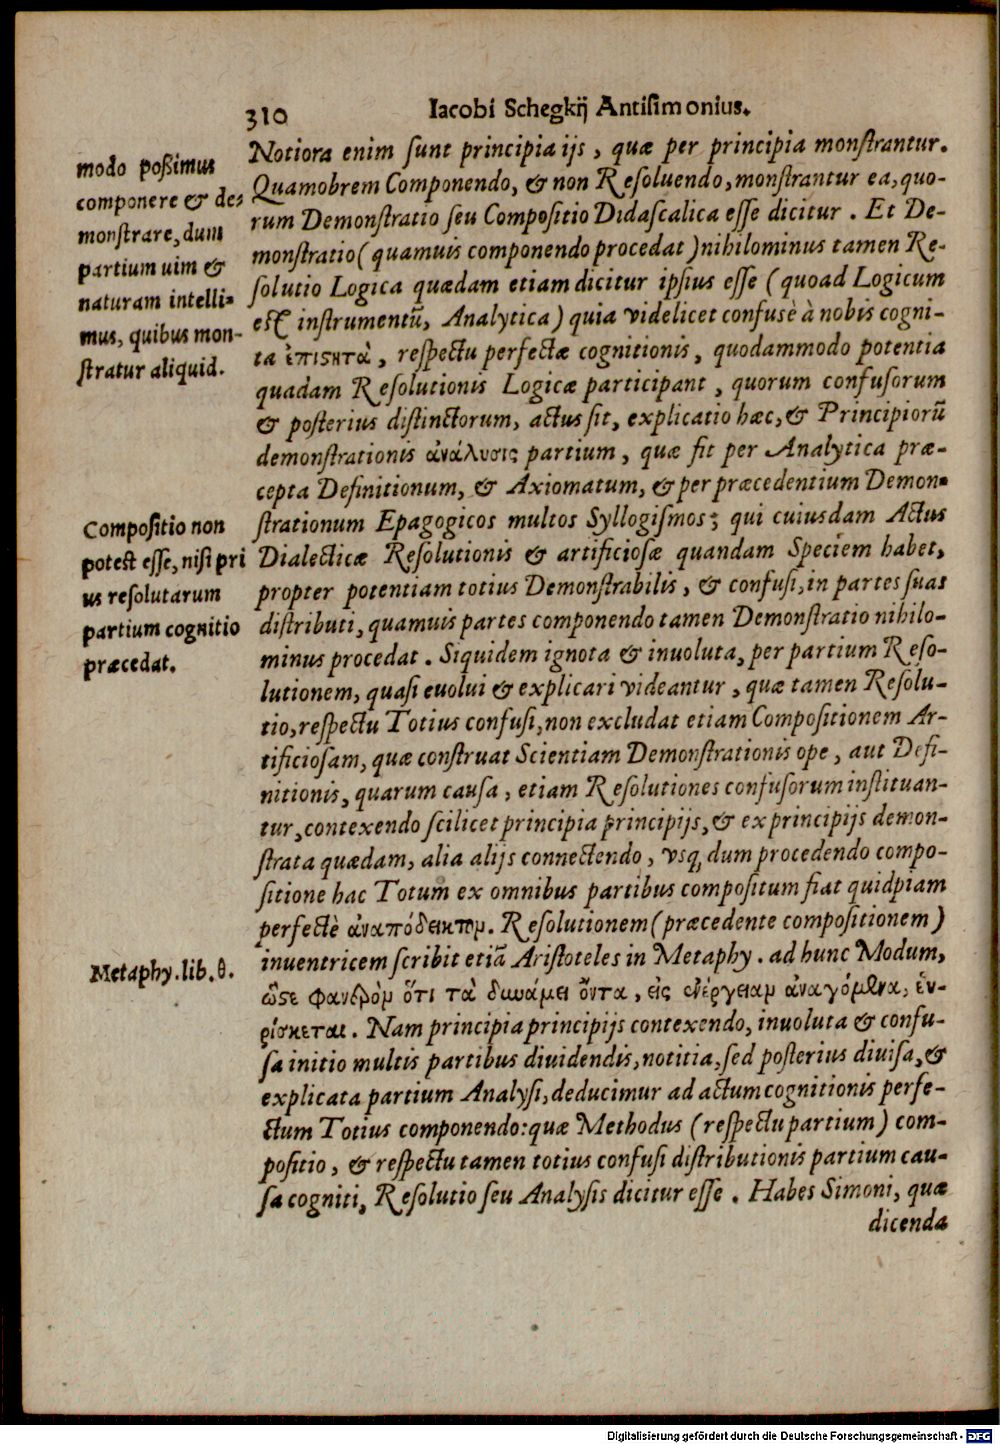 310 Iacobi Schegkij Antisimonius.
modo poßimus
componere & de-
monstrare, dum
partium uim &
naturam intelli-
mus, quibus mon-
stratur aliquid.
Notiora enim sunt principia ijs, quæ per principia monstrantur.
Quamobrem Componendo, & non Resoluendo, monstrantur ea, quo-
rum Demonstratio seu Compositio Didascalica esse dicitur. Et De-
monstratio (quamuis componendo procedat) nihilominus tamen Re-
solutio Logica quædam etiam dicitur ipsius esse (quoad Logicum
est instrumentũ, Analytica) quia videlicet confusè à nobis cogni-
ta ἐπιϛητὰ, respectu perfectæ cognitionis, quodammodo potentia
quadam Resolutionis Logicæ participant, quorum confusorum
& posterius distinctorum, actus sit, explicatio hæc, & Principiorũ
demonstrationis ἀνάλυσις partium, quæ fit per Analytica præ-
cepta Definitionum, & Axiomatum, & per præcedentium Demon-
strationum Epagogicos multos Syllogismos; qui cuiusdam Actus
Dialecticæ Resolutionis & artificiosæ quandam Speciem habet,
propter potentiam totius Demonstrabilis, & confusi, in partes suas
distributi, quamuis partes componendo tamen Demonstratio nihilo-
minus procedat. Siquidem ignota & inuoluta, per partium Reso-
lutionem, quasi euolui & explicari videantur, quæ tamen Resolu-
tio, respectu Totius confusi, non excludat etiam Compositionem Ar-
tificiosam, quæ construat Scientiam Demonstrationis ope, aut Defi-
nitionis, quarum causa, etiam Resolutiones confusorum instituan-
tur, contexendo scilicet principia principijs, & ex principijs demon-
strata quædam, alia alijs connectendo, vsq; dum procedendo compo-
sitione hac Totum ex omnibus partibus compositum fiat quidpiam
perfectè ἀναπόδεικτον. Resolutionem (præcedente compositionem)
inuentricem scribit etiã Aristoteles in Metaphy. ad hunc Modum,
ὥϛε φανερὸν ὅτι τὰ δυνάμει ὄντα, εἰς ἐνέργειαν ἀναγόμενα, ἑυ-
ρίσκεται. Nam principia principijs contexendo, inuoluta & confu-
sa initio multis partibus diuidendis, notitia, sed posterius diuisa, &
explicata partium Analysi, deducimur ad actum cognitionis perfe-
ctum Totius componendo: quæ Methodus (respectu partium) com-
positio, & respectu tamen totius confusi distributionis partium cau-
sa cogniti, Resolutio seu Analysis dicitur esse. Habes Simoni, quæ
dicenda
Compositio non
potest esse, nisi pri
us resolutarum
partium cognitio
præcedat.
Metaphy. lib. θ.
Digitalisierung gefördert durch die Deutsche Forschungsgemeinschaft - DFG